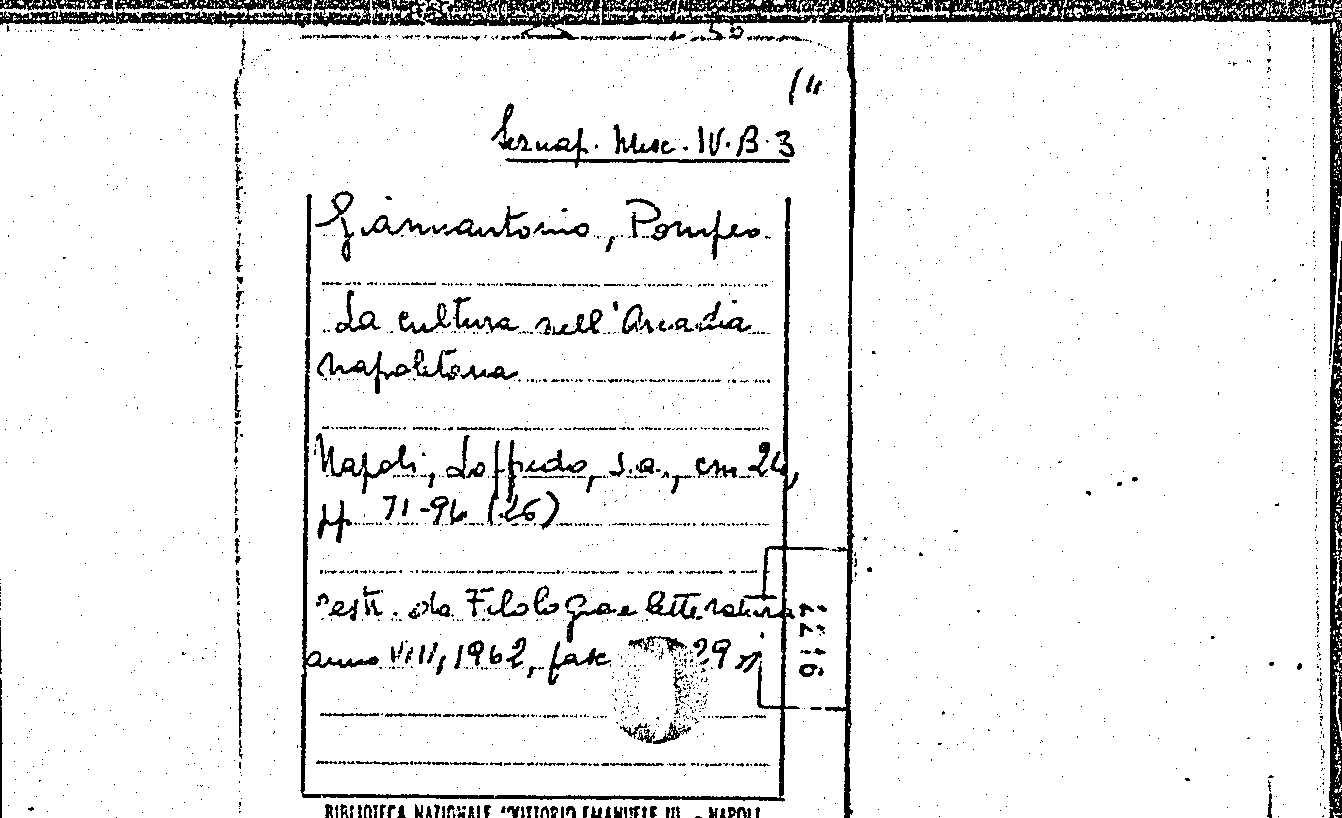 Seznap. Misc. IV. B. 3
Giannantonio, Pompeo
La cultura nell'Arcadia
napoletana
Napoli, Loffredo, s.a., cm 24,
pp. 71-96 (26)
estr. da Filologia e letteratura
anno VIII, 1962, fasc 29
22216
BIBLIOTECA NAZIONALE "VITTORIO EMANUELE III" - NAPOLI